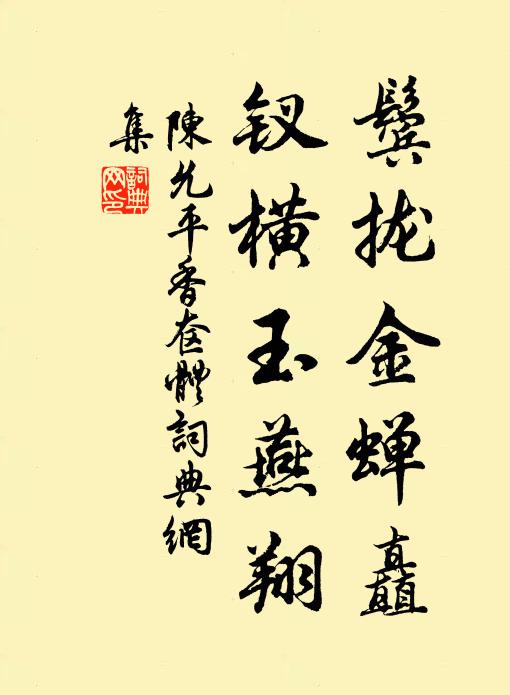 鬓拢金蝉矗
钗横玉燕翔
陳允平香奁體詞典網
集
詞典
网印